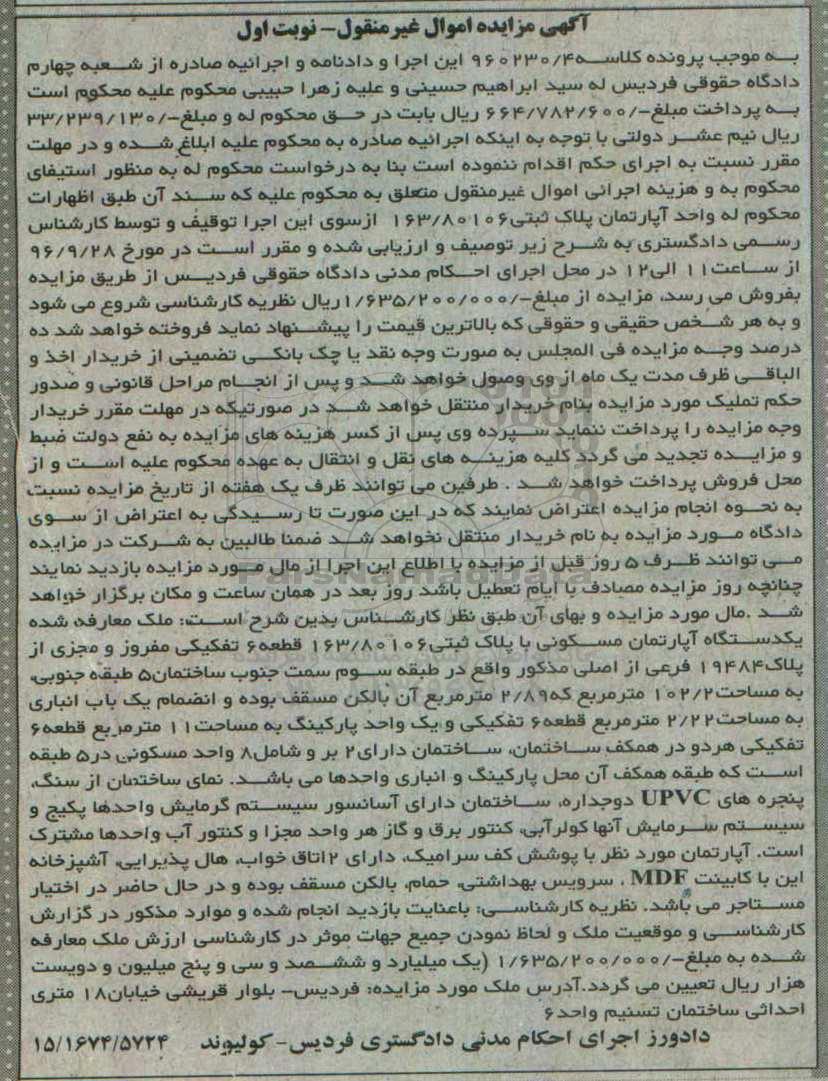 آگهی مزایده اموال غیرمنقول- نوبت اول
به موجب پرونده کلاسه۹۶۰۲۳۰/۴ این اجرا و دادنامه و اجرائیه صادره از شعبه چهارم
دادگاه حقوقی فردیس له سید ابراهیم حسینی و علیه زهرا حبیبی محکوم علیه محکوم است
به پرداخت مبلغ-/۶۶۴/۷۸۲/۶۰۰ ریال بابت در حق محکوم له و مبلغ-/۳۳/۲۳۹/۱۳۰
ریال نیم عشر دولتی با توجه به اینکه اجرائیه صادره به محکوم علیه ابلاغ شده و در مهلت
مقرر نسبت به اجرای حکم اقدام ننموده است بنا به درخواست محکوم له به منظور استیفای
محکوم به و هزینه اجرائی اموال غیرمنقول متعلق به محکوم علیه که سند آن طبق اظهارات
محکوم له واحد آپارتمان پلاک ثبتی۱۶۳/۸۰۱۰۶ ازسوی این اجرا توقیف و توسط کارشناس
رسمی دادگستری به شرح زیر توصیف و ارزیابی شده و مقرر است در مورخ ۹۶/۹/۲۸
از ساعت۱۱ الی۱۲ در محل اجرای احکام مدنی دادگاه حقوقی فردیس از طریق مزایده
بفروش می رسد، مزایده از مبلغ-/۱/۶۳۵/۲۰۰/۰۰۰ریال نظریه کارشناسی شروع می شود
و به هر شخص حقیقی و حقوقی که بالاترین قیمت را پیشنهاد نماید فروخته خواهد شد ده
درصد وجه مزایده فی المجلس به صورت وجه نقد یا چک بانکی تضمینی از خریدار اخذ و
الباقی ظرف مدت یک ماه از وی وصول خواهد شد و پس از انجام مراحل قانونی و صدور
حکم تملیک مورد مزایده بنام خریدار منتقل خواهد شد در صورتیکه در مهلت مقرر خریدار
وجه مزایده را پرداخت ننماید سپرده وی پس از کسر هزینه های مزایده به نفع دولت ضبط
و مزایده تجدید می گردد کلیه هزینه های نقل و انتقال به عهده محکوم علیه است و از
محل فروش پرداخت خواهد شد . طرفین می توانند ظرف یک هفته از تاریخ مزایده نسبت
به نحوه انجام مزایده اعتراض نمایند که در این صورت تا رسیدگی به اعتراض از سوی
دادگاه مورد مزایده به نام خریدار منتقل نخواهد شد ضمنا طالبین به شرکت در مزایده
می توانند ظرف ۵ روز قبل از مزایده با اطلاع این اجرا از مال مورد مزایده بازدید نمایند
چنانچه روز مزایده مصادف با ایام تعطیل باشد روز بعد در همان ساعت و مکان برگزار خواهد
شد .مال مورد مزایده و بهای آن طبق نظر کارشناس بدین شرح است: ملک معارفه شده
یکدستگاه آپارتمان مسکونی با پلاک ثبتی۱۶۳/۸۰۱۰۶ قطعه۶ تفکیکی مفروز و مجزی از
پلاک۱۹۴۸۴ فرعی از اصلی مذکور واقع در طبقه سوم سمت جنوب ساختمان۵ طبقه جنوبی،
به مساحت۱۰۲/۲ مترمربع که۲/۸۹ مترمربع آن بالکن مسقف بوده و انضمام یک باب انباری
به مساحت۲/۲۲ مترمربع قطعه۶ تفکیکی و یک واحد پارکینگ به مساحت۱۱ مترمربع قطعه۶
تفکیکی هردو در همکف ساختمان، ساختمان دارای۲ بر و شامل۸ واحد مسکونی در۵ طبقه
است که طبقه همکف آن محل پارکینگ و انباری واحدها می باشد. نمای ساختمان از سنگ،
پنجره های UPVC دوجداره، ساختمان دارای آسانسور سیستم گرمایش واحدها پکیج و
سیستم سرمایش آنها کولرآبی، کنتور برق و گاز هر واحد مجزا و کنتور آب واحدها مشترک
است. آپارتمان مورد نظر با پوشش کف سرامیک، دارای ۲اتاق خواب، هال پذیرایی، آشپزخانه
این با کابینت MDF ، سرویس بهداشتی، حمام، بالکن مسقف بوده و در حال حاضر در اختیار
مستاجر می باشد. نظریه کارشناسی: باعنایت بازدید انجام شده و موارد مذکور در گزارش
کارشناسی و موقعیت ملک و لحاظ نمودن جمیع جهات موثر در کارشناسی ارزش ملک معارفه
شده به مبلغ-/۱/۶۳۵/۲۰۰/۰۰۰ (یک میلیارد و ششصد و سی و پنج میلیون و دویست
هزار ریال تعیین می گردد.آدرس ملک مورد مزایده: فردیس- بلوار قریشی خیابان۱۸ متری
احداثی ساختمان تسنیم واحد۶
دادورز اجرای احکام مدنی دادگستری فردیس- کولیوند ۱۵/۱۶۷۴/۵۷۲۴
ParsNamadData